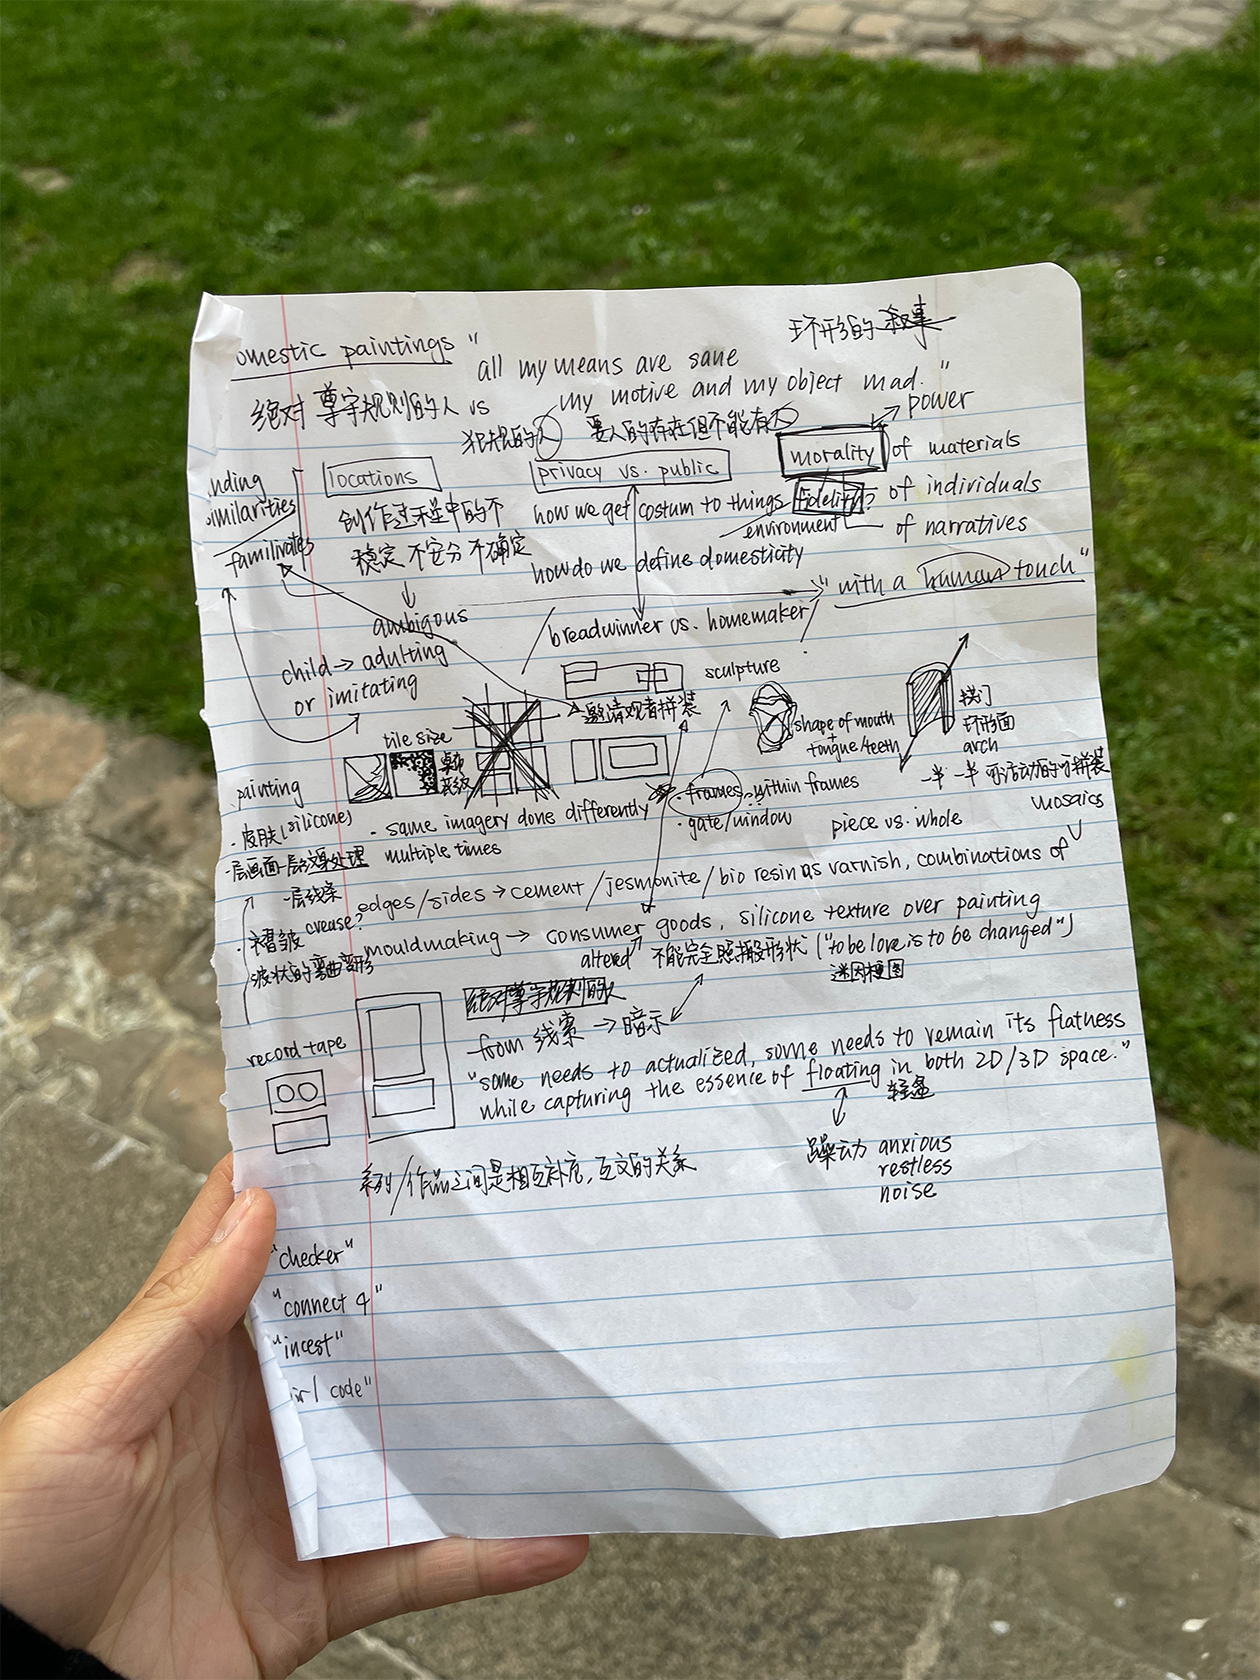 环形的叙事
omestic paintings "all my means are sane
my motive and my object mad."
绝对尊守规则的人 vs 犯规的人 要人的存在但不能有人
power
nding similarities
familirates
locations
创作过程中的不
稳定 不安分 不确定
ambigous
child → adulting
or imitating
privacy vs. public
how we get costum to things
environment
how do we define domesticity
breadwinner vs. homemaker
morality of materials
fidelity? of individuals
of narratives
"with a human touch"
tile size
邀请观者拼装
sculpture
shape of mouth
+
tongue/teeth
拱门
环形面
arch
一半一半 可活动的可拼装
mosaics
painting
· 皮肤(silicone)
一层画面一层纹身处理
一层线条
· 褶皱 crease?
波状的弯曲变形
· same imagery done differently
multiple times
· frames within frames
??
· gate/window
piece vs. whole
edges/sides → cement/jesmonite/bio resin as varnish, combinations of
mouldmaking → consumer goods, silicone texture over painting
altered 不能完全照搬形状 ("to be love is to be changed")
迷因梗图
record tape
绝对尊守规则的人
from 线索 → 暗示
"some needs to actualized, some needs to remain its flatness
while capturing the essence of floating in both 2D/3D space."
轻盈
躁动 anxious
restless
noise
系列/作品之间是相互补充,互文的关系
"checker"
"connect 4"
"incest"
irl code"